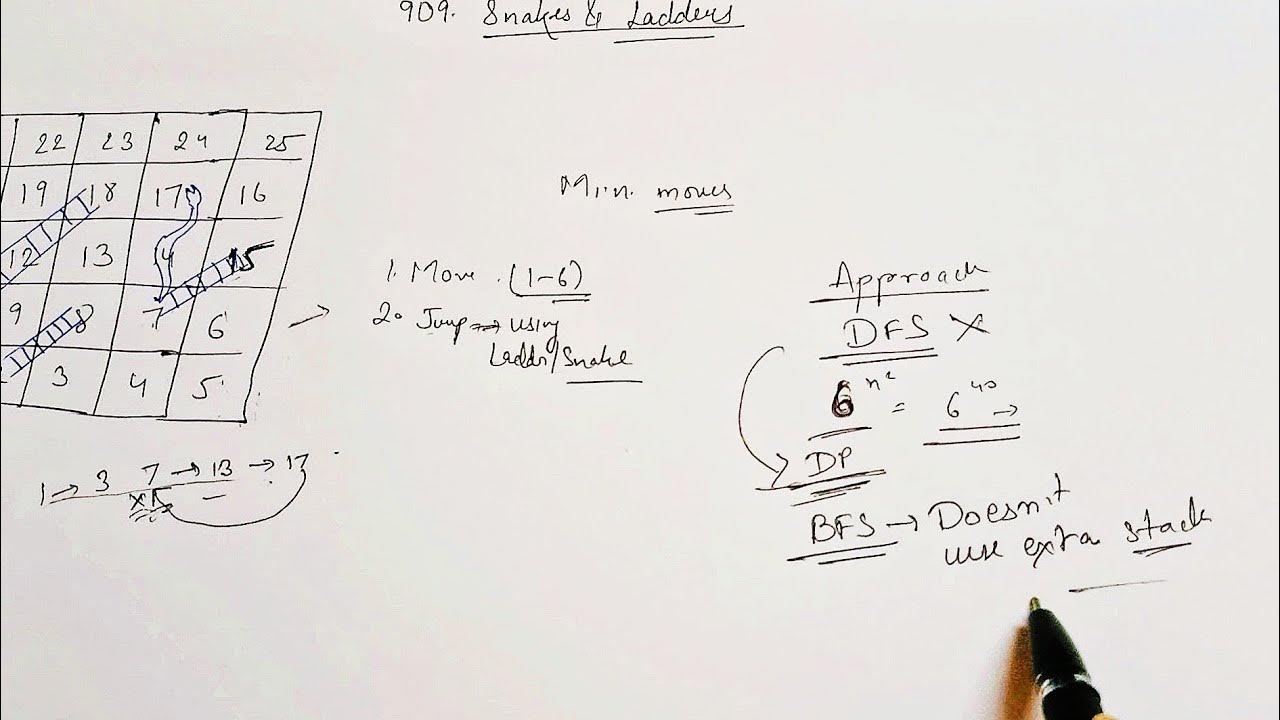 909. Snakes & Ladders
22 23 24 25
19 18 17 16
12 13 14 15
9 8 7 6
3 4 5
1 → 3 7 → 13 → 17
Min. moves
1. Move. (1-6)
2. Jump → using
Laddr/Snake
Approach
DFS X
6^n² = 6^40 →
DP
BFS → Doesn't
use extra stack